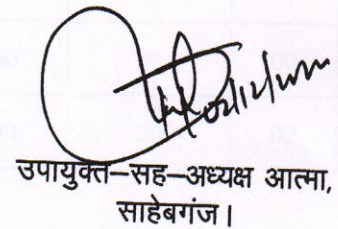 उपायुक्त–सह–अध्यक्ष आत्मा,
साहेबगंज।